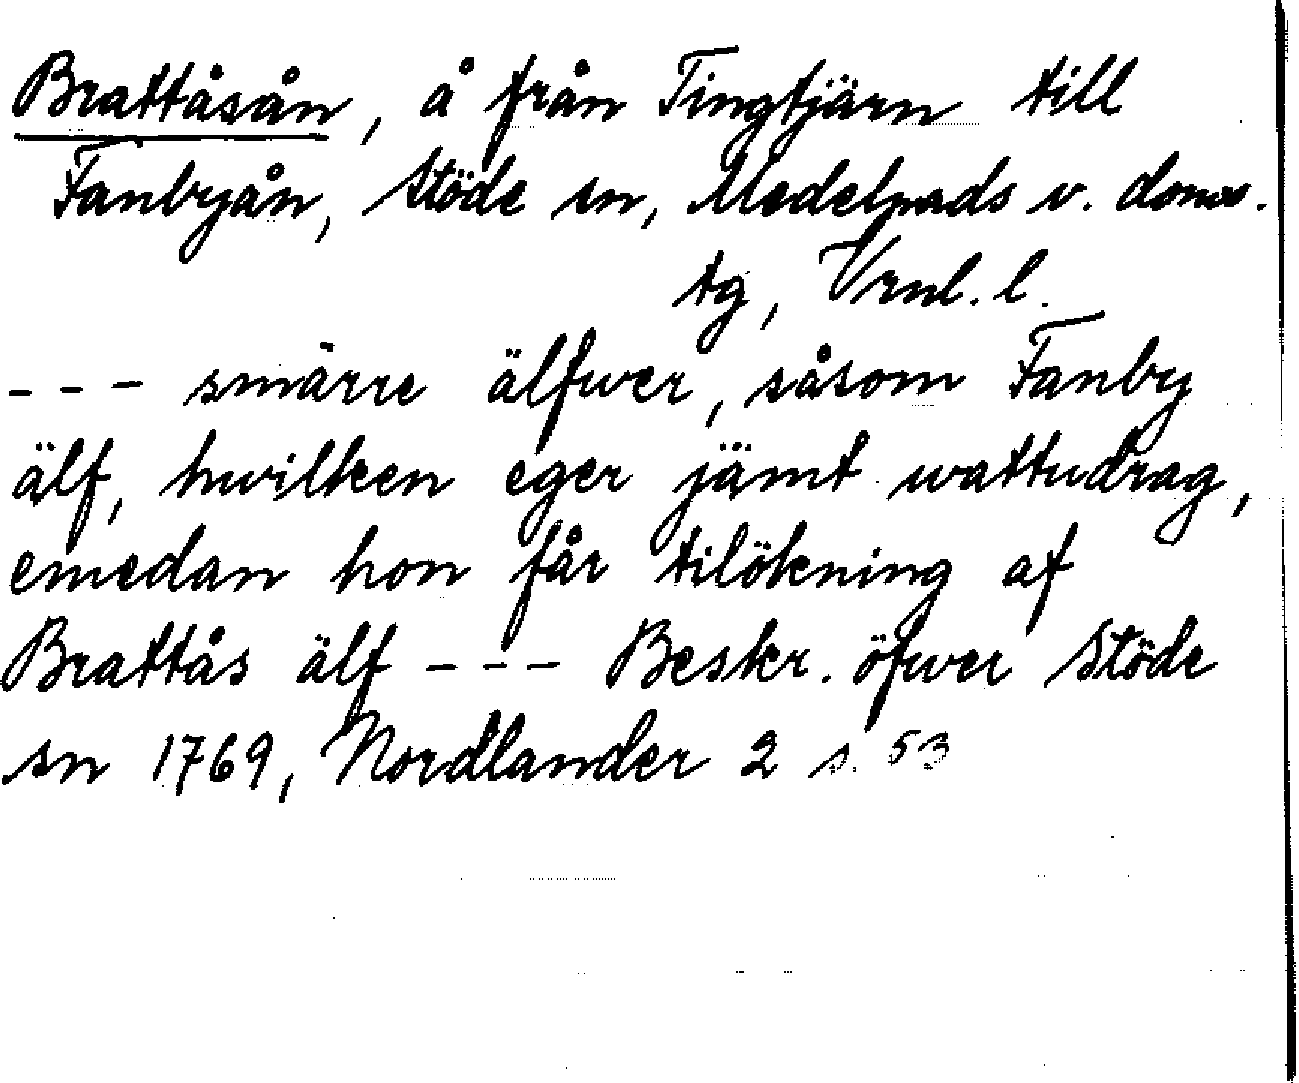 Brattåsån, å från Tingtjärn till
Fanbyån, Stöde sn, Medelpads v. doms.
tg, Vrnl. l.
- - - smärre älfwer, såsom Fanby
älf, hwilken eger jämt wattudrag,
emedan hon får tilökning af
Brattås älf - - - Beskr. öfwer Stöde
sn 1769, Nordlander 2 s. 53